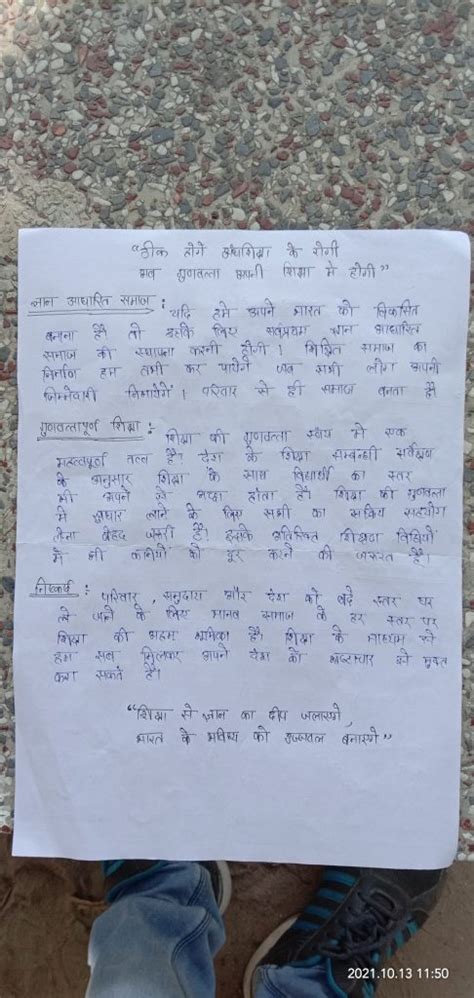 "ठीक होंगे अंधशिक्षा के रोगी
जब गुणवत्ता अपनी शिक्षा में होगी"
ज्ञान आधारित समाज : यदि हमे अपने भारत को विकसित
बनाना है तो इसके लिए सर्वप्रथम ज्ञान आधारित
समाज की स्थापना करनी होगी । शिक्षित समाज का
निर्माण हम तभी कर पायेंगे जब सभी लोग अपनी
जिम्मेवारी निभायेगें । परिवार से ही समाज बनता है
गुणवत्तापूर्ण शिक्षा :- शिक्षा की गुणवत्ता स्वयं में एक
महत्वपूर्ण तत्व है। देश के शिक्षा सम्बन्धी सर्वेक्षण
के अनुसार शिक्षा के साथ विद्यार्थी का स्तर
भी अपने होता है। शिक्षा की गुणवत्ता
में सुधार लाने के लिए सभी का सक्रिय सहयोग
लेना बेहद जरूरी है। इसके अतिरिक्त शिक्षण विधियों
में भी कमियों को दूर करने की जरूरत है।
निष्कर्ष : परिवार, समुदाय और देश को बड़े स्तर पर
ले जाने के लिए मानव समाज के हर स्तर पर
शिक्षा की अहम भूमिका है। शिक्षा के माध्यम से
हम सब मिलकर अपने देश को भ्रष्टाचार से मुक्त
करा सकते है।
"शिक्षा से ज्ञान का दीप जलाएंगे,
भारत के भविष्य को उज्जवल बनाएंगे"
2021.10.13 11:50